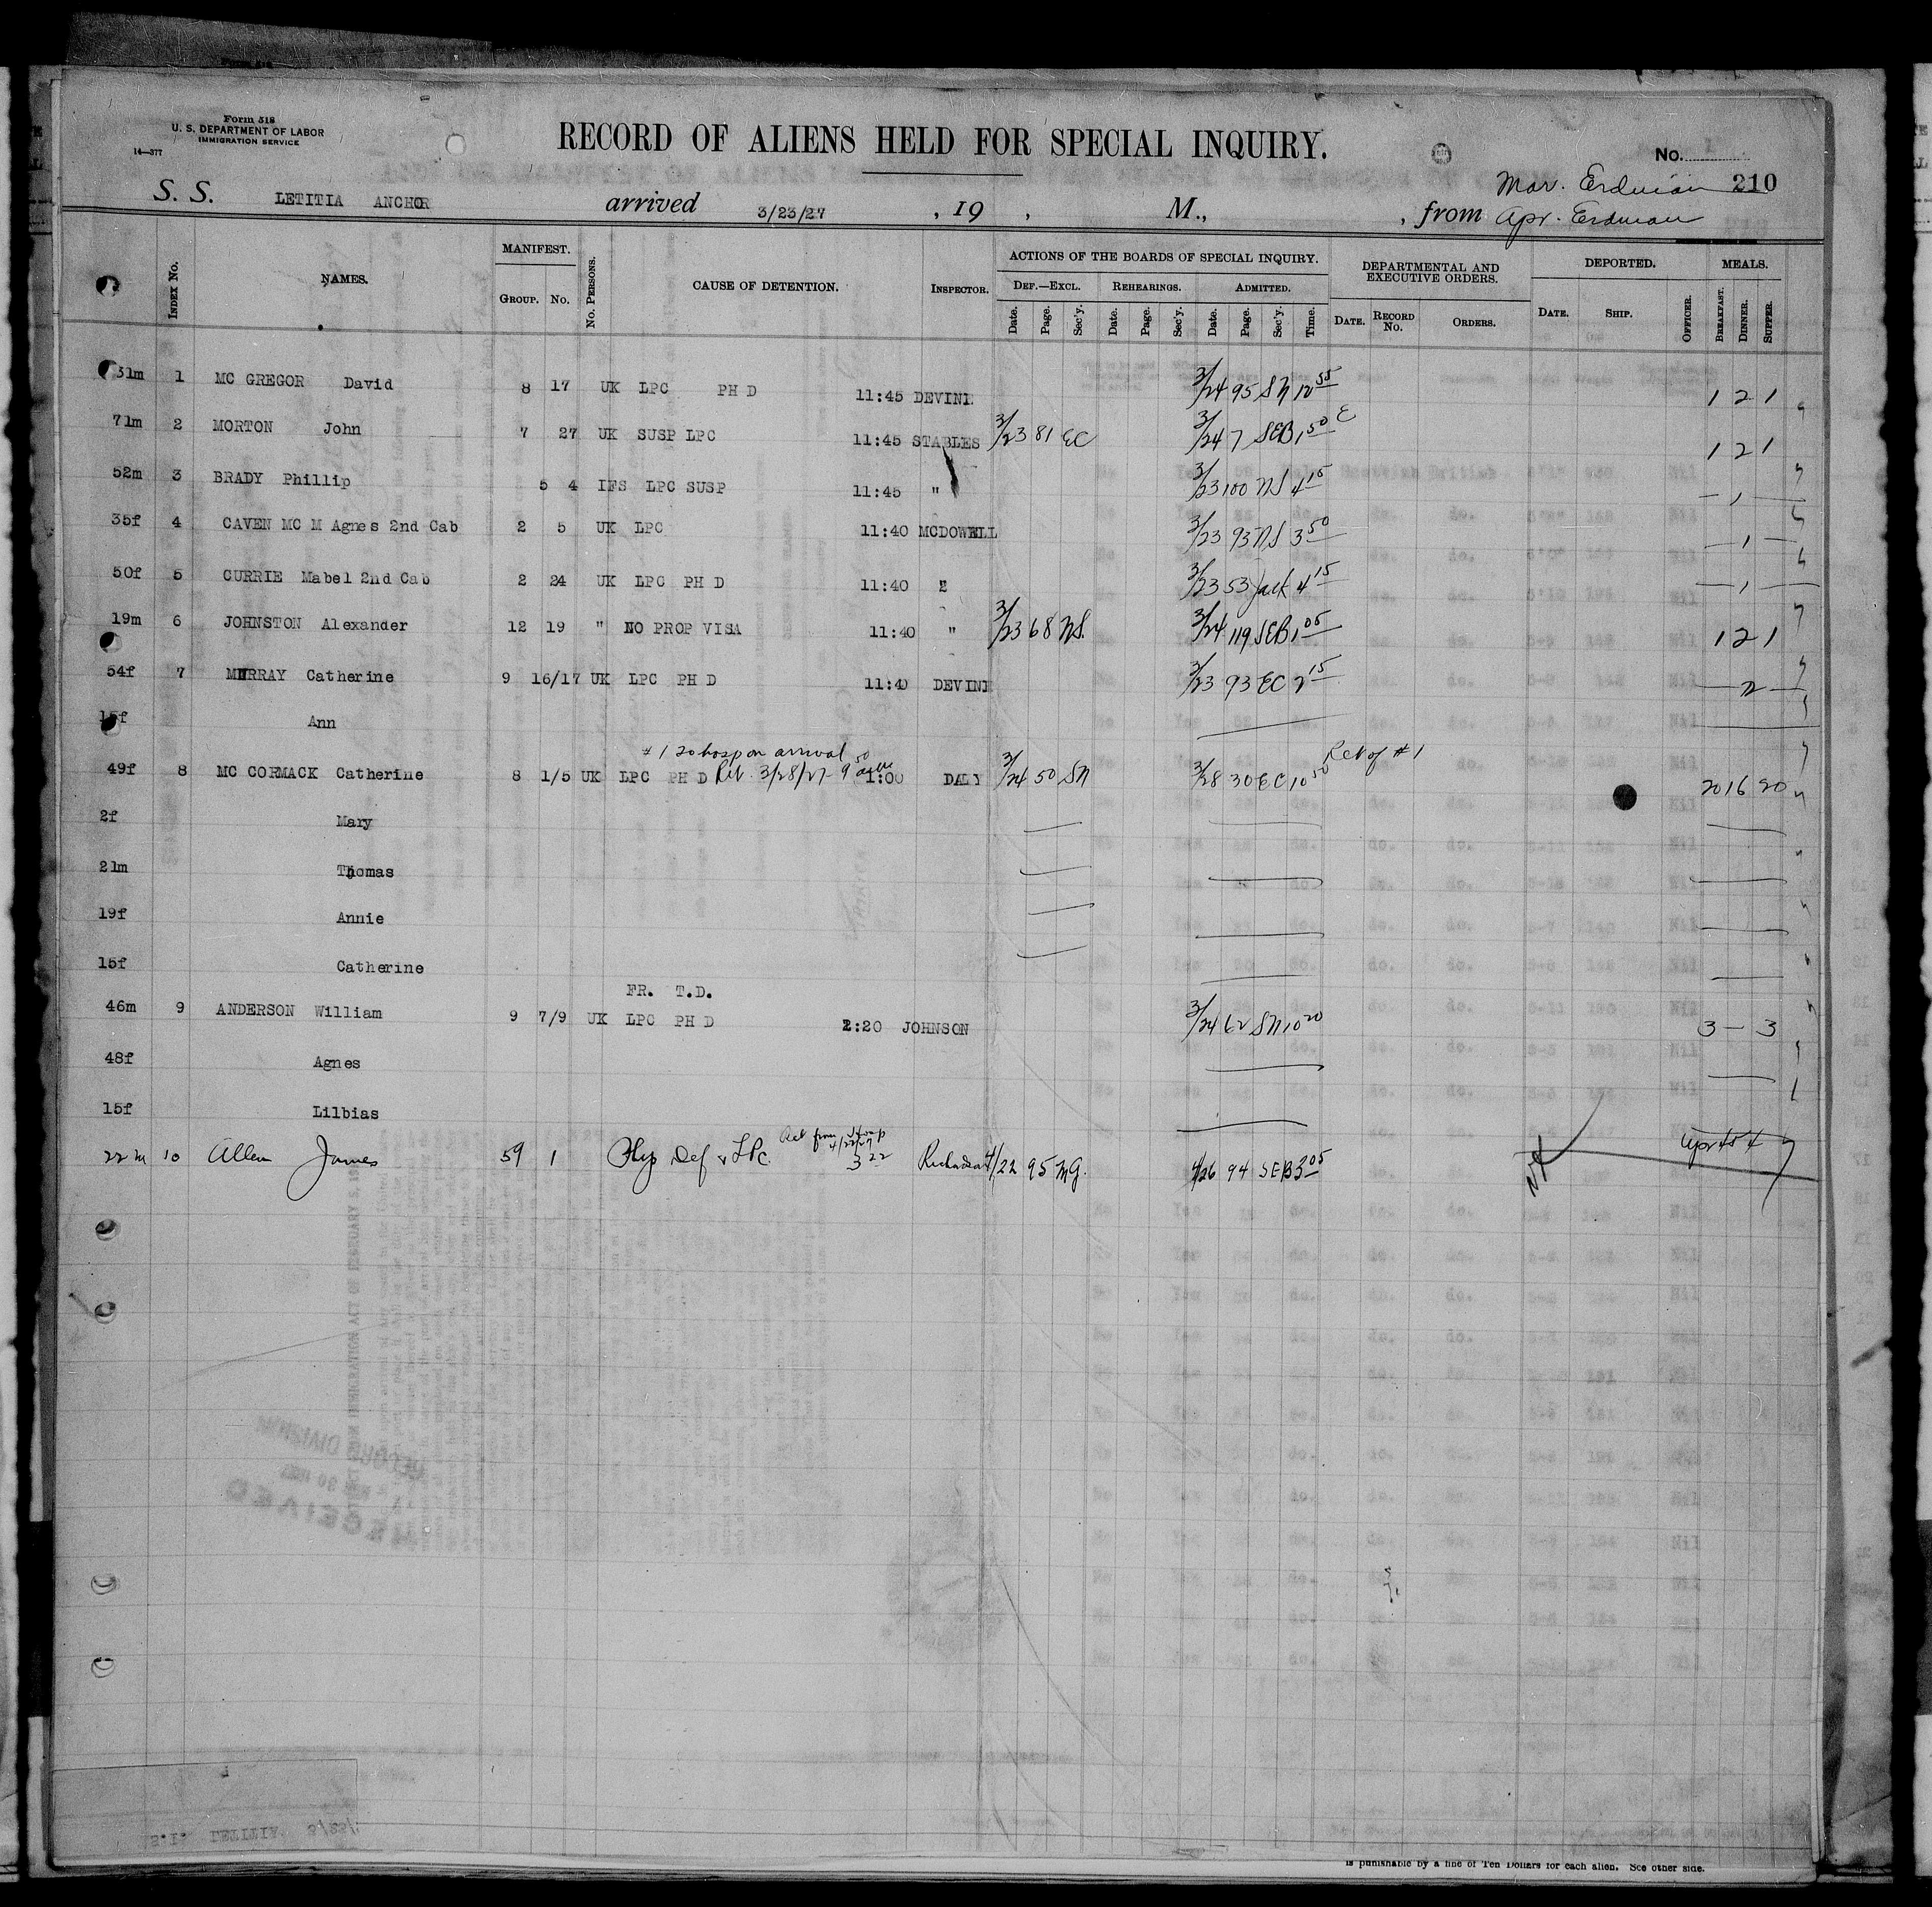 Form 318
U. S. DEPARTMENT OF LABOR
IMMIGRATION SERVICE
14—377
RECORD OF ALIENS HELD FOR SPECIAL INQUIRY.
No.
Mar. Erdman 210
S. S. LETITIA ANCHOR arrived 3/23/27 , 19 , M., , from Apr. Erdman
Index No. NAMES. MANIFEST. Group. No. No. Persons. CAUSE OF DETENTION. Inspector. ACTIONS OF THE BOARDS OF SPECIAL INQUIRY. DEPARTMENTAL AND EXECUTIVE ORDERS. DEPORTED. MEALS.
Def.—Excl. Rehearings. Admitted.
Date. Page. Sec'y. Date. Page. Sec'y. Date. Page. Sec'y. Time. Date. Record No. Orders. Date. Ship. Officer. Breakfast. Dinner. Supper.
31m 1 MC GREGOR David 8 17 UK LPC PH D 11:45 DEVINE 3/24 95 SN 10 55 1 2 1
71m 2 MORTON John 7 27 UK SUSP LPC 11:45 STABLES 3/23 81 EC 3/24 7 SEB 1 50 E 1 2 1
52m 3 BRADY Phillip 5 4 IFS LPC SUSP 11:45 " 3/23 100 NS 4 15 — 1 —
35f 4 CAVEN MC M Agnes 2nd Cab 2 5 UK LPC 11:40 MCDOWELL 3/23 93 NS 3 50 — 1 —
50f 5 CURRIE Mabel 2nd Cab 2 24 UK LPC PH D 11:40 " 3/23 53 Jack 4 15 — 1 —
19m 6 JOHNSTON Alexander 12 19 " NO PROP VISA 11:40 " 3/23 68 NS. 3/24 119 SEB 1 05 1 2 1
54f 7 MURRAY Catherine 9 16/17 UK LPC PH D 11:40 DEVINE 3/23 93 EC 2 15 — 2 —
15f Ann
# 1 to hosp on arrival
49f 8 MC CORMACK Catherine 8 1/5 UK LPC PH D Ret. 3/28/27 - 9 50 1:00 DALY 3/24 50 SN 3/28 30 EC 10 50 Ret of # 1 20 16 20
2f Mary
21m Thomas
19f Annie
15f Catherine
FR. T.D.
46m 9 ANDERSON William 9 7/9 UK LPC PH D 2:20 JOHNSON 3/24 62 SN 10 20 3 — 3
48f Agnes
15f Lilbias
Ret from Hosp
4/22/27
22m 10 Allen James 59 1 Phys Def & LPC. 3 22 Richardson 4/22 95 MG. 4/26 94 SEB 3 05
RECEIVED
RECORD DIVISION
is punishable by a fine of Ten Dollars for each alien. See other side.